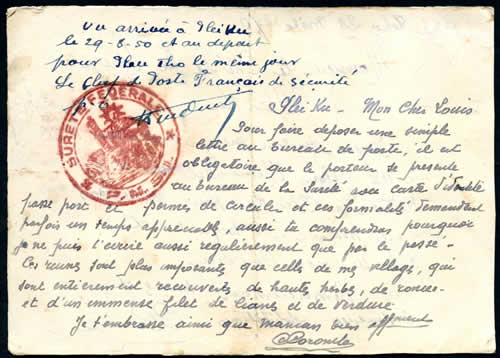 vu arrivée à Pleiku
le 29-8-50 et au depart
pour Plau Tho le même jour
Le Chef de Poste Français de Sécurité
SURETE FEDERALE
P.M.S.I.
Plei Ku - Mon Cher Louis
Pour faire deposer une simple
lettre au bureau de poste, il est
obligatoire que le porteur se presente
au bureau de la Sureté avec carte d'identité
passe port et permis de circuler et ces formalités demandent
parfois un temps appreciable, aussi tu comprendras pourquoi
je ne puis t'ecrire aussi regulierement que par le passé -
Ces ruines sont plus imposantes que celles de mes villages, qui
sont entierement recouverts de hautes herbes, de ronces
et d'un immense filet de lianes et de verdure
Je t'embrasse ainsi que maman bien affment